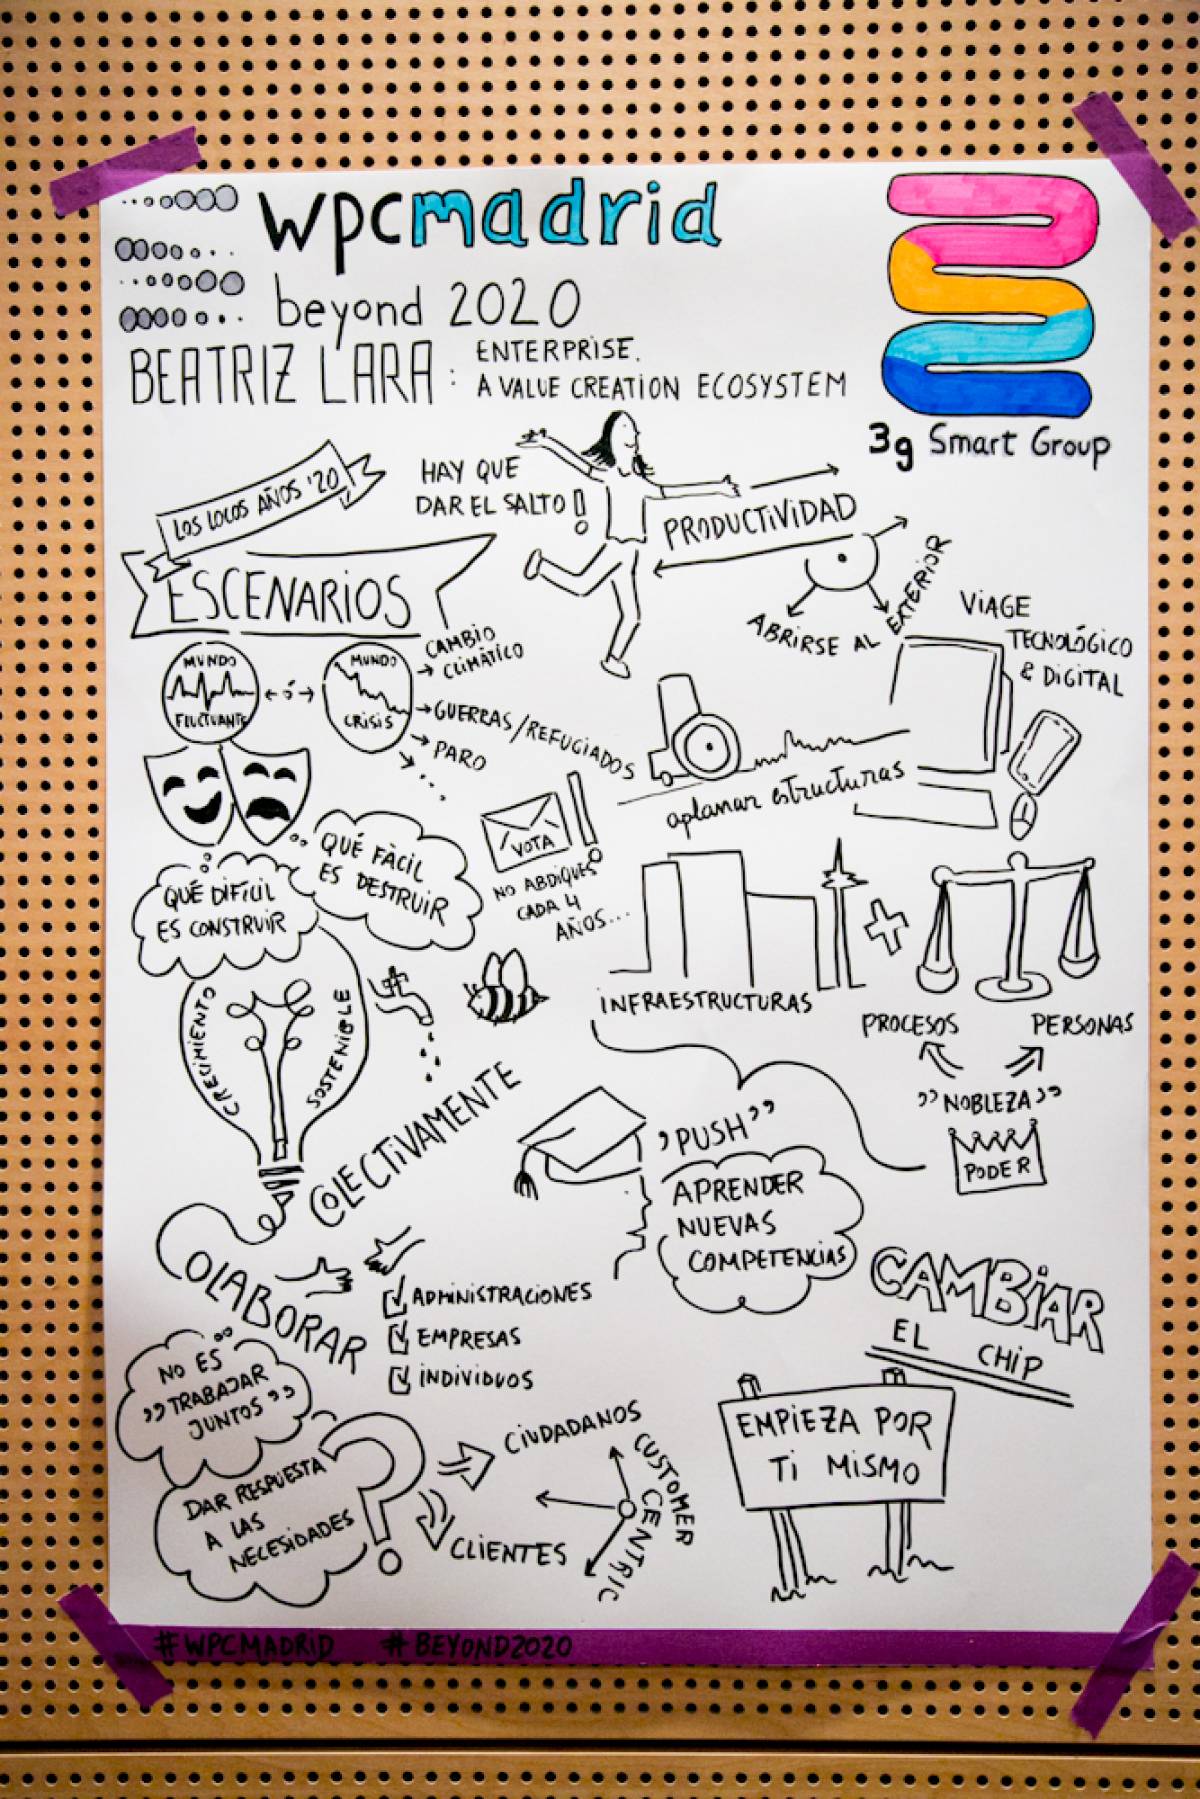 wpcmadrid
beyond 2020
BEATRIZ LARA:
ENTERPRISE.
A VALUE CREATION ECOSYSTEM
3g Smart Group
LOS LOCOS AÑOS '20
ESCENARIOS
HAY QUE
DAR EL SALTO!
PRODUCTIVIDAD
ABRIRSE AL EXTERIOR
VIAGE
TECNOLÓGICO
& DIGITAL
MUNDO
FLUCTUANTE
ó
MUNDO
CRISIS
CAMBIO
CLIMÁTICO
GUERRAS/REFUGIADOS
PARO
...
aplanar estructuras
VOTA
!
NO ABDIQUES
CADA 4
AÑOS...
QUÉ DIFÍCIL
ES CONSTRUIR
QUÉ FÀCIL
ES DESTRUIR
CRECIMIENTO
SOSTENIBLE
INFRAESTRUCTURAS
+
PROCESOS
PERSONAS
"NOBLEZA"
PODER
COLECTIVAMENTE
COLABORAR
ADMINISTRACIONES
EMPRESAS
INDIVIDUOS
"PUSH"
APRENDER
NUEVAS
COMPETENCIAS
CAMBIAR
EL CHIP
NO ES
"TRABAJAR
JUNTOS"
DAR RESPUESTA
A LAS
NECESIDADES
?
CIUDADANOS
CLIENTES
CUSTOMER
CENTRIC
EMPIEZA POR
TI MISMO
#WPCMADRID #BEYOND2020